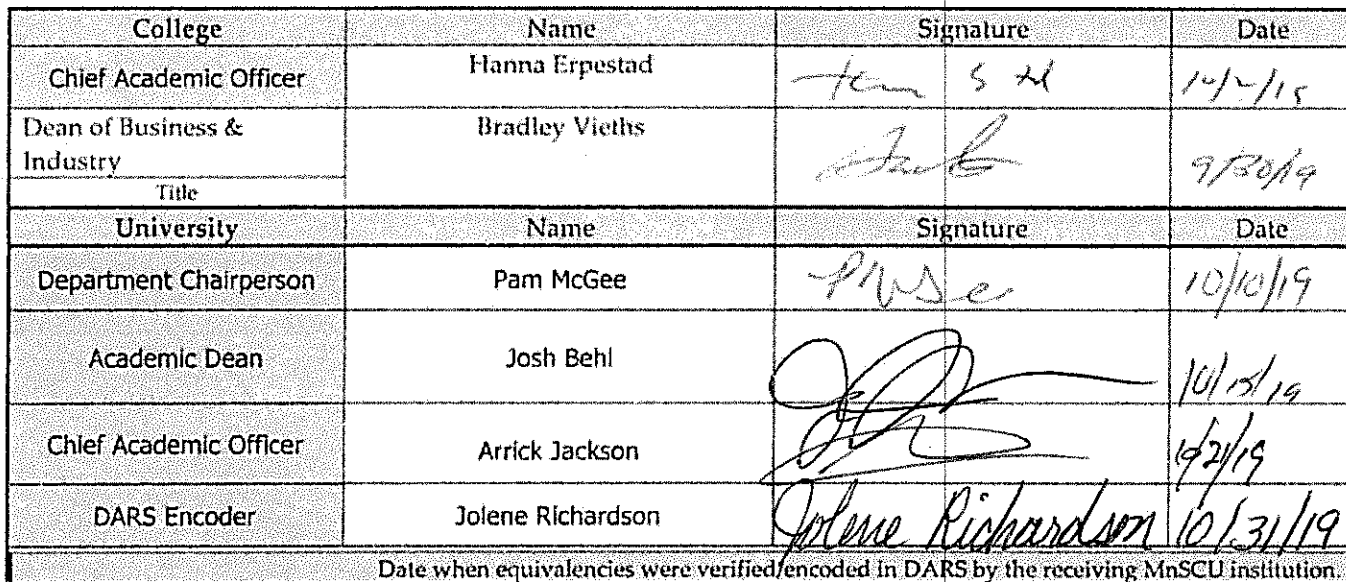 College Name Signature Date
Chief Academic Officer Hanna Erpestad
Dean of Business & Bradley Vieths 9/30/19
Industry
Title
University Name Signature Date
Department Chairperson Pam McGee 10/10/19
Academic Dean Josh Behl 10/15/19
Chief Academic Officer Arrick Jackson 10/21/19
DARS Encoder Jolene Richardson Jolene Richardson 10/31/19
Date when equivalencies were verified/encoded in DARS by the receiving MnSCU institution.